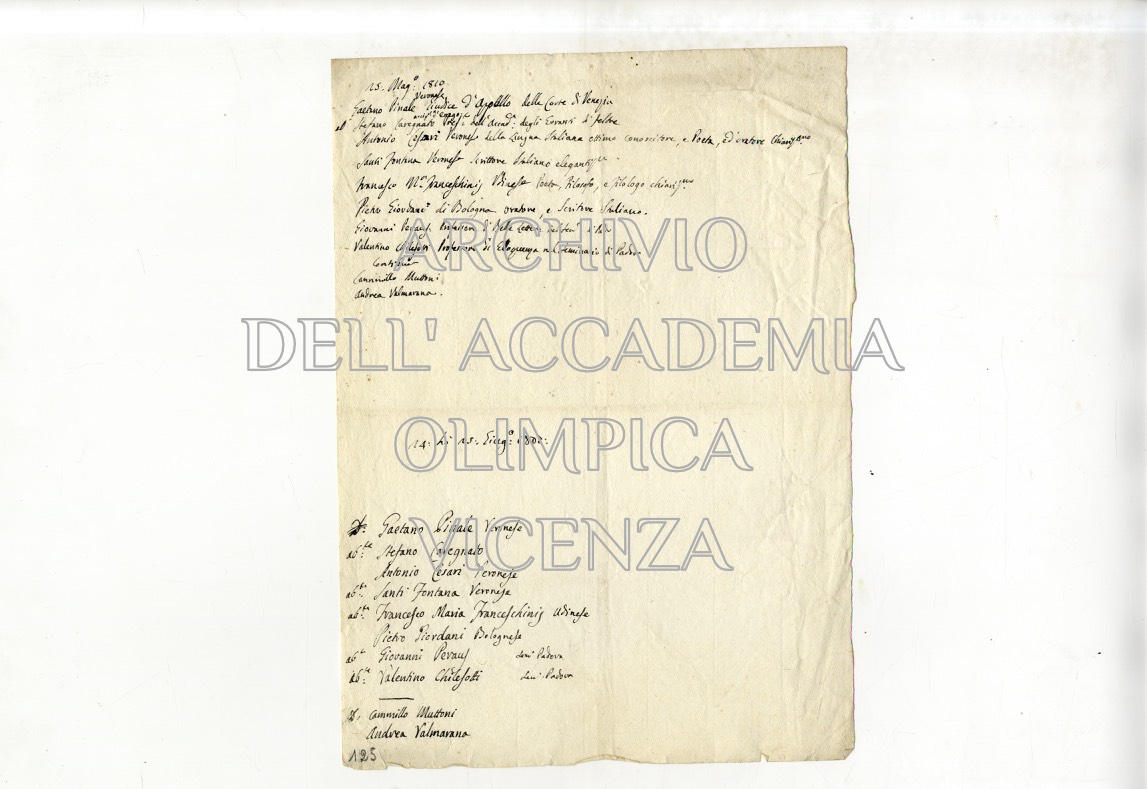 15. Mag.º 1810
Veronese
Gaetano Pinale Giudice d'Appello della Corte di Venezia
ab.
Stefano Cavegnato dell'Accad.ª degli Erranti di Feltre
Antonio Cesari Veronese della Lingua Italiana ottimo conoscitore, e Poeta, ed oratore Chiariss.mo
Santi Fontana Veronese Scrittore Italiano elegantiss.
Francesco M.ª Franceschinis Udinese Poeta, Filosofo, e filologo chiariss.mo
Pietro Giordani di Bologna oratore, e Scrittore Italiano.
Giovanni Peraus Professore di Belle Lettere
Valentino Chilesotti Professore di Eloquenza nel Seminario di Padova
Cammillo Muttoni
Andrea Valmarana.
ARCHIVIO
DELL' ACCADEMIA
OLIMPICA
VICENZA
14: Li 15: Giug.º 1810:
D.r Gaetano Pinale Veronese
ab.te Stefano Cavegnato
Antonio Cesari Veronese
ab.te Santi Fontana Veronese
ab.te Francesco Maria Franceschinis Udinese
Pietro Giordani Bolognese
ab.te Giovanni Peraus Sem: Padova
ab.te Valentino Chilesotti Sem: Padova
Cammillo Muttoni
Andrea Valmarana
125